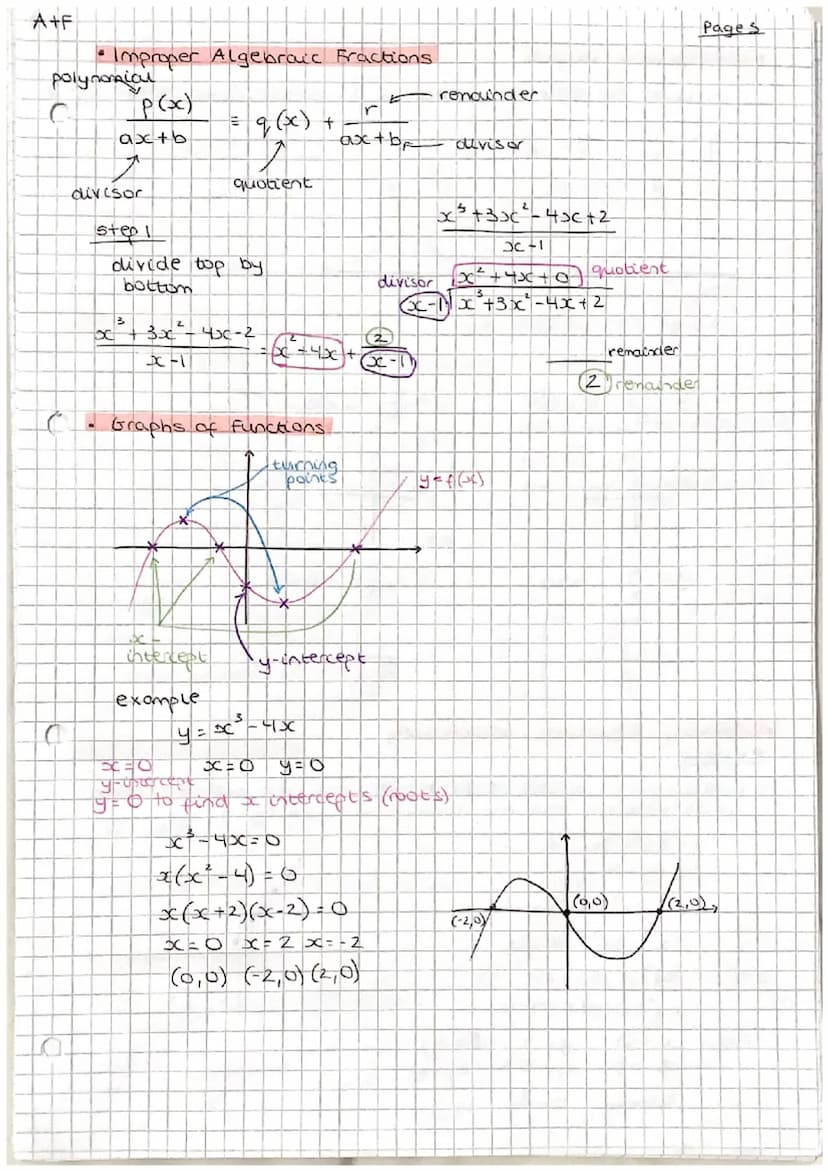 A+F
Page 5
• Improper Algebraic Fractions
polynomial
p(x)/(ax+b) ≡ q(x) + r/(ax+b)
remainder
divisor
divisor
quotient
step 1
divide top by
bottom
(x³+3x²-4x+2)/(x-1)
divisor
x²+4x+0 quotient
x-1 x³+3x²-4x+2
(x³+3x²-4x-2)/(x-1) = x²-4x + 2/(x-1)
remainder
2 remainder
• Graphs of Functions
turning
points
y=f(x)
x-
intercept
y-intercept
example
y=x³-4x
x=0 x=0 y=0
y-intercept
y=0 to find x intercepts (roots)
x³-4x=0
x(x²-4)=0
x(x+2)(x-2)=0
x=0 x=2 x=-2
(0,0) (-2,0) (2,0)
(-2,0)
(0,0)
(2,0)